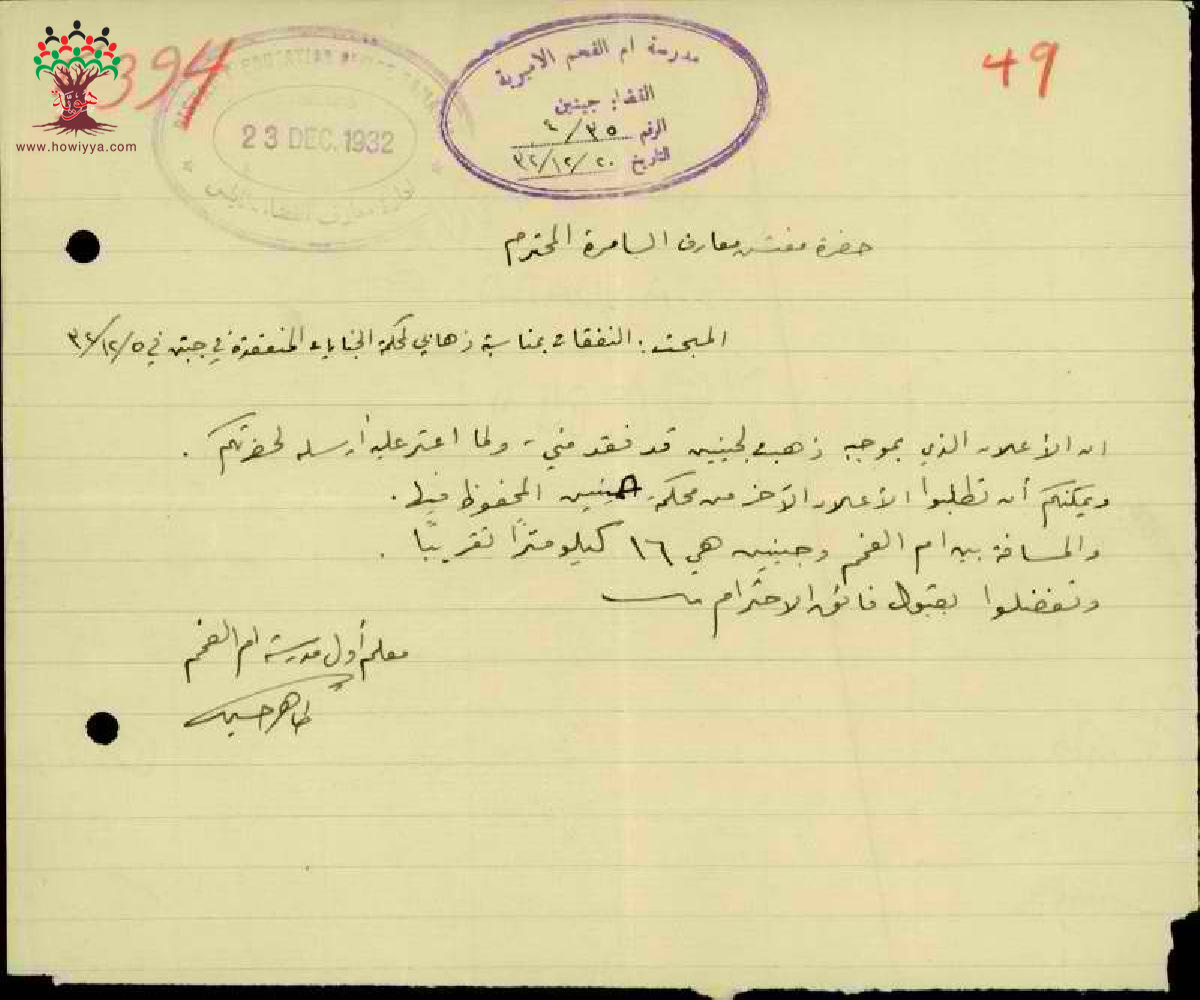 394
49
23 DEC. 1932
www.howiyya.com
هوية
مدرسة ام الفحم الاميرية
القضاء جينين
الرقم ٤/٣٥
التاريخ ٣٢/١٢/٢٠
حضرة مفتش معارف السامرة المحترم
المبحث: النفقات بمناسبة ذهابي لمحكمة الجنايات المنعقدة في جنين في ٣٢/١٢/٥
ان الأعلان الذي بموجبه ذهبت لجينين قد فقد مني، ولما اعثر عليه أرسله لحضرتكم.
ويمكنكم أن تطلبوا الأعلان الآخر من محكمة جينين المحفوظ فيها.
والمسافة بين ام الفحم وجينين هي ١٦ كيلومترًا تقريبًا.
وتفضلوا بقبول فائق الاحترام
معلم أول مدرسة ام الفحم
طاهر حسين